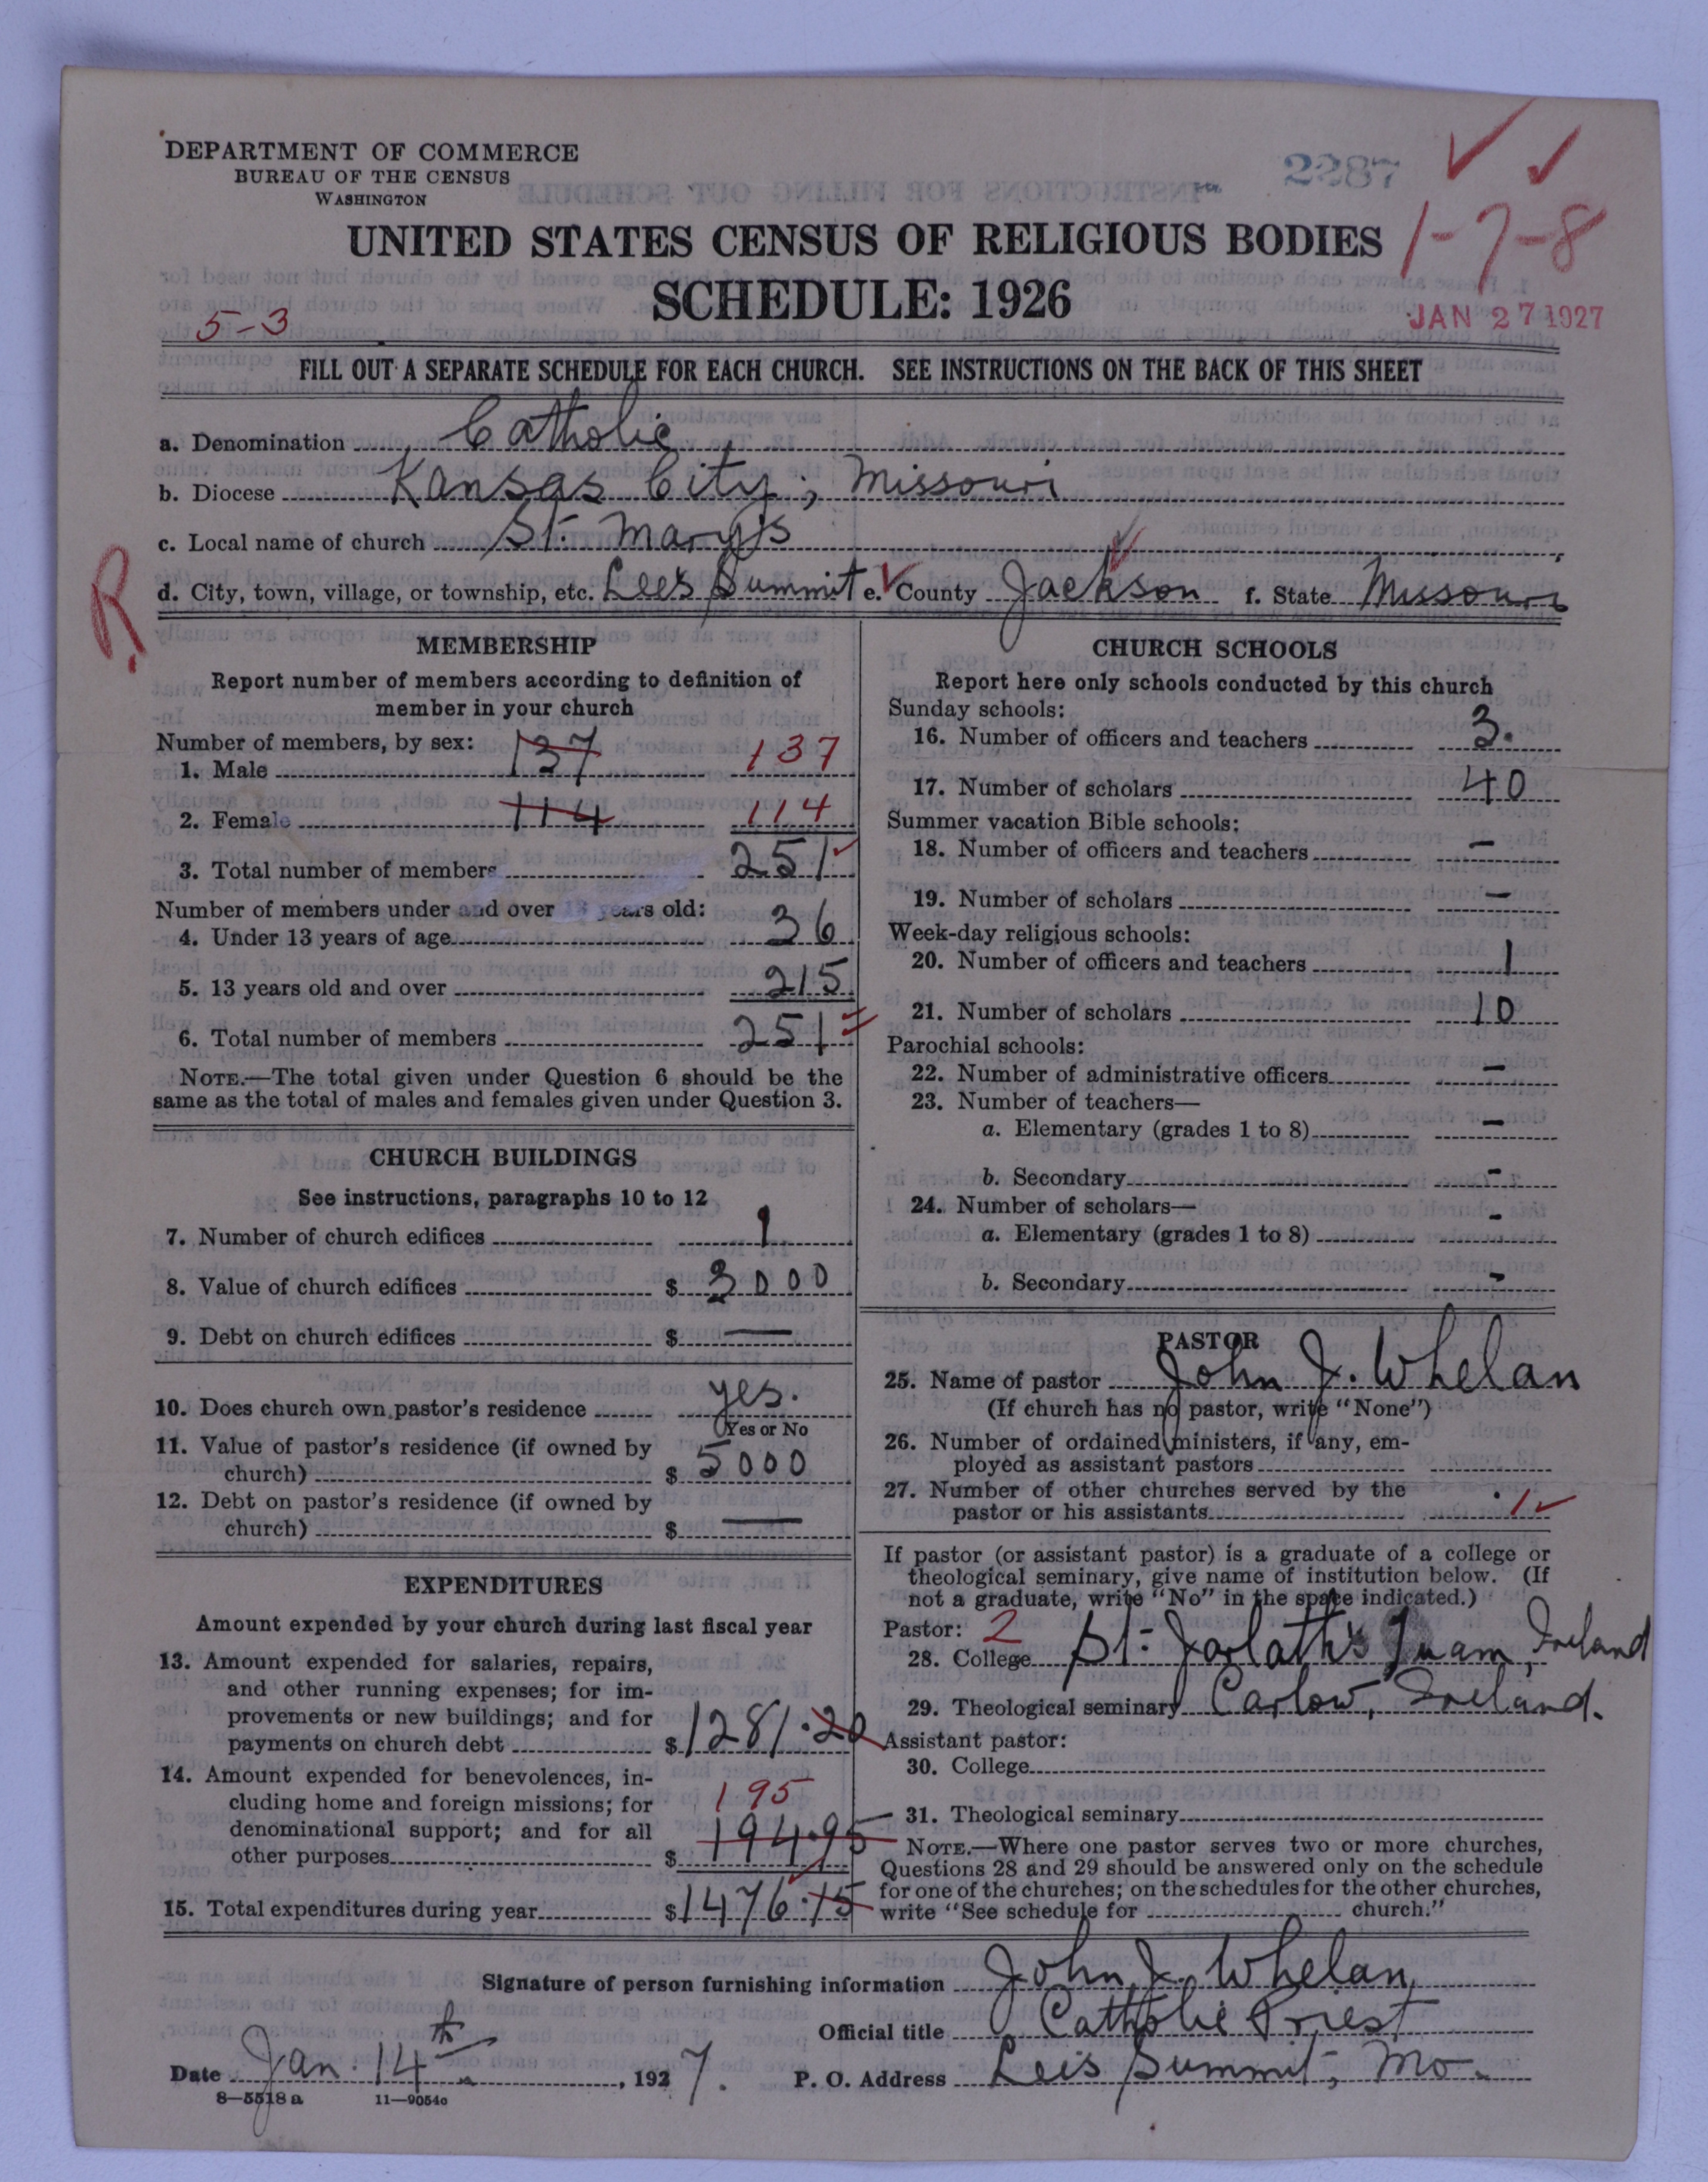 DEPARTMENT OF COMMERCE
BUREAU OF THE CENSUS
WASHINGTON
2287
1-7-8
UNITED STATES CENSUS OF RELIGIOUS BODIES
SCHEDULE: 1926
5-3
JAN 27 1927
FILL OUT A SEPARATE SCHEDULE FOR EACH CHURCH. SEE INSTRUCTIONS ON THE BACK OF THIS SHEET
a. Denomination Catholic
b. Diocese Kansas City, Missouri
c. Local name of church St. Mary's
R.
d. City, town, village, or township, etc. Lee's Summit e. County Jackson f. State Missouri
MEMBERSHIP
Report number of members according to definition of
member in your church
Number of members, by sex:
1. Male 137 137
2. Female 114 114
3. Total number of members 251
Number of members under and over 13 years old:
4. Under 13 years of age 36
5. 13 years old and over 215
6. Total number of members 251
NOTE.—The total given under Question 6 should be the
same as the total of males and females given under Question 3.
CHURCH BUILDINGS
See instructions, paragraphs 10 to 12
7. Number of church edifices 1
8. Value of church edifices $ 3000
9. Debt on church edifices $ —
10. Does church own pastor's residence yes.
Yes or No
11. Value of pastor's residence (if owned by
church) $ 5000
12. Debt on pastor's residence (if owned by
church) $ —
EXPENDITURES
Amount expended by your church during last fiscal year
13. Amount expended for salaries, repairs,
and other running expenses; for im-
provements or new buildings; and for
payments on church debt $ 1281.20
14. Amount expended for benevolences, in-
cluding home and foreign missions; for
denominational support; and for all
other purposes $ 195 194.95
15. Total expenditures during year $ 1476.15
CHURCH SCHOOLS
Report here only schools conducted by this church
Sunday schools:
16. Number of officers and teachers 3.
17. Number of scholars 40
Summer vacation Bible schools:
18. Number of officers and teachers -
19. Number of scholars -
Week-day religious schools:
20. Number of officers and teachers 1
21. Number of scholars 10
Parochial schools:
22. Number of administrative officers -
23. Number of teachers—
a. Elementary (grades 1 to 8) -
b. Secondary -
24. Number of scholars—
a. Elementary (grades 1 to 8) -
b. Secondary -
PASTOR
25. Name of pastor John J. Whelan
(If church has no pastor, write "None")
26. Number of ordained ministers, if any, em-
ployed as assistant pastors
27. Number of other churches served by the
pastor or his assistants 1
If pastor (or assistant pastor) is a graduate of a college or
theological seminary, give name of institution below. (If
not a graduate, write "No" in the space indicated.)
Pastor: 2
28. College St. Jarlath's Tuam, Ireland
29. Theological seminary Carlow, Ireland.
Assistant pastor:
30. College
31. Theological seminary
NOTE.—Where one pastor serves two or more churches,
Questions 28 and 29 should be answered only on the schedule
for one of the churches; on the schedules for the other churches,
write "See schedule for church."
Signature of person furnishing information John J. Whelan
Official title Catholic Priest
Date Jan. 14th, 1927. P. O. Address Lee's Summit, Mo.
8—5518 a 11—9054o